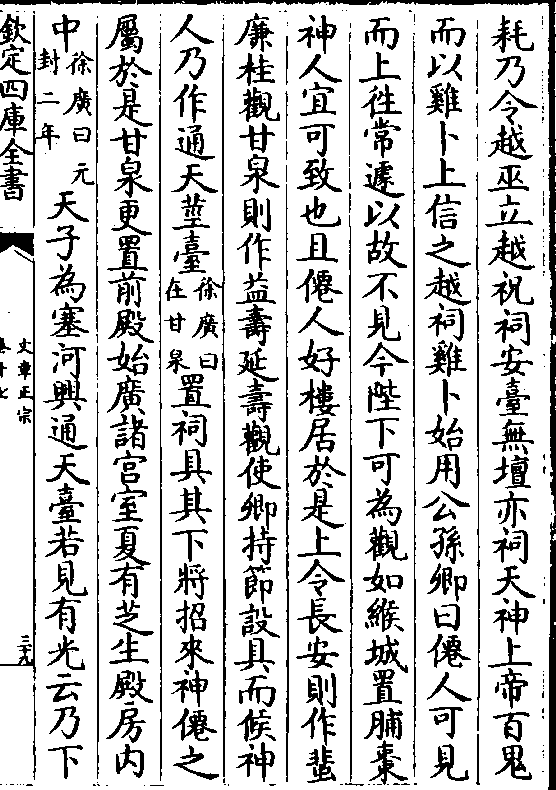 耗乃令越巫立越祝祠安臺無壇亦祠天神上帝百鬼
而以雞卜上信之越祠雞卜始用公孫卿曰僊人可見
而上徃常遽以故不見今陛下可為觀如緱城置脯棗
神人宜可致也且僊人好樓居於是上令長安則作蜚
廉桂觀甘泉則作益夀延夀觀使卿持節設具而候神
人乃作通天莖臺徐廣曰在甘泉置祠具其下將招來神僊之
屬於是甘泉更置前殿始廣諸宫室夏有芝生殿房内
中徐廣曰元封二年天子為塞河興通天臺若見有光云乃下
欽定四庫全書
文章正宗
三十九